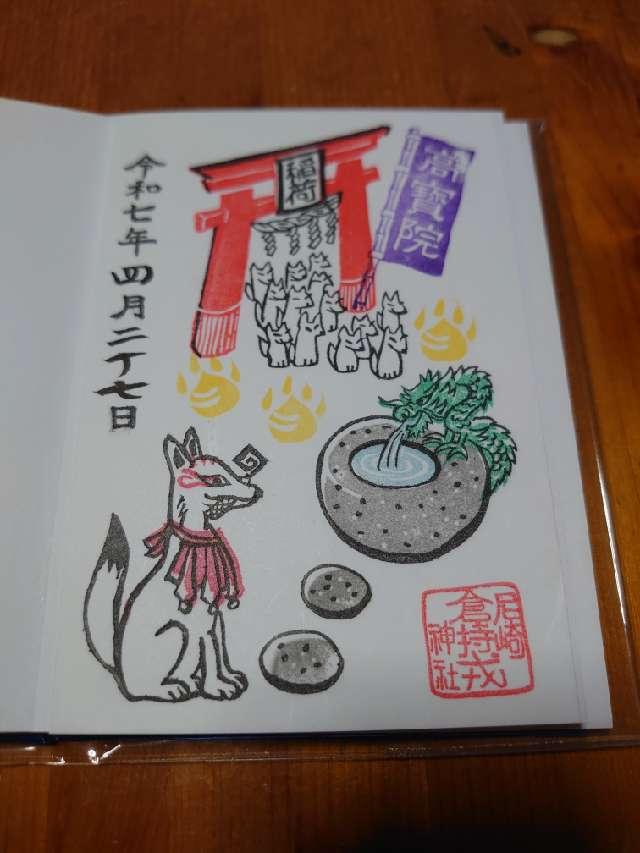 令和七年四月二十七日
稲荷
寶院
尼崎
倉持戎
神社